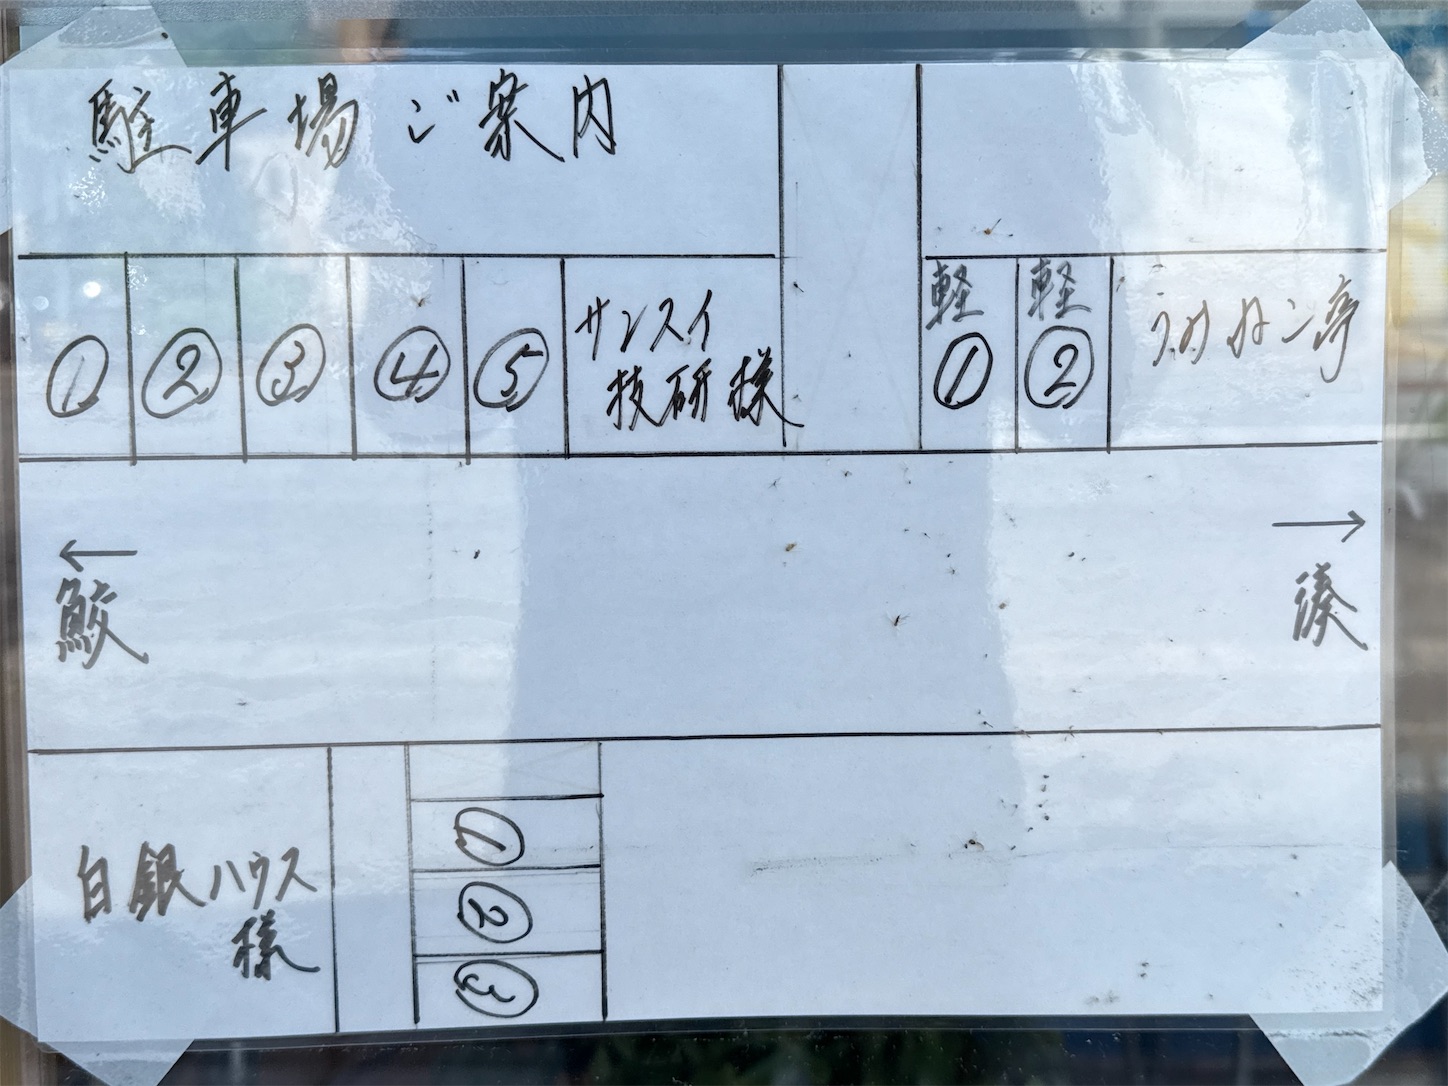 駐車場ご案内
① ② ③ ④ ⑤
サンスイ
技研様
軽 軽
① ②
亭
← →
鮫 湊
白銀ハウス
様
①
②
③